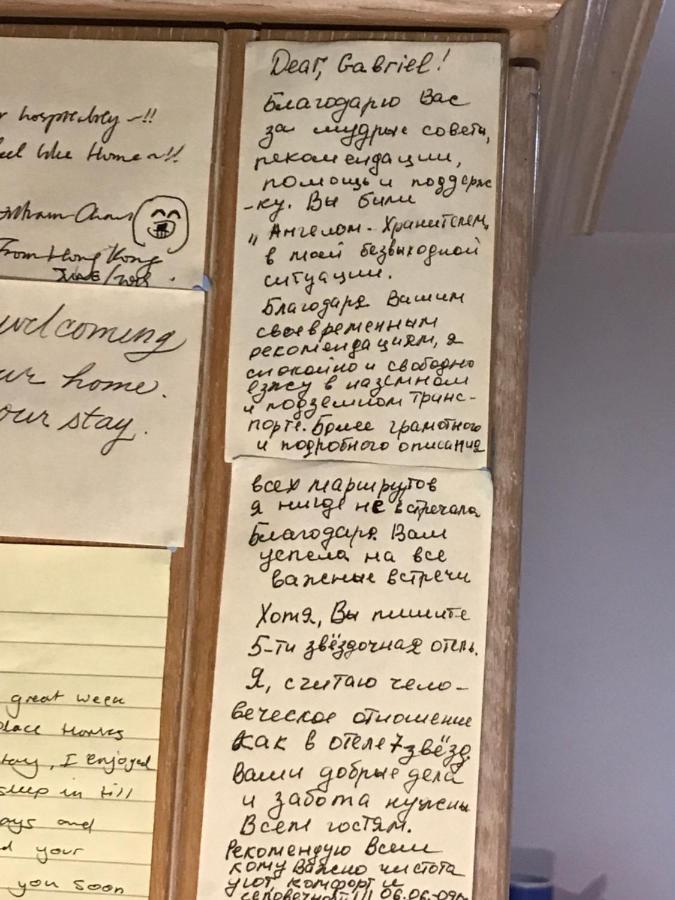 r hospitality ~!!
eel like Home ~!!
From Hong Kong
welcoming
ur home.
our stay.
great week
place
tay, I enjoyed
sleep in till
ays and
d your
you soon
Dear, Gabriel!
Благодарю Вас
за мудрые советы,
рекомендации,
помощь и поддерж
-ку. Вы были
„Ангелом-Хранителем"
в моей безвыходной
ситуации.
Благодаря Вашим
своевременным
рекомендациям, я
спокойно и свободно
езжу в наземном
и подземном транс-
порте. Более грамотного
и подробного описания
всех маршрутов
я нигде не встречала
Благодаря Вам
успела на все
важные встречи
Хотя, Вы пишите
5-ти звёздочная отель.
Я, считаю чело-
веческое отношение
как в отеле 7 звёзд
Ваши добрые дела
и забота нужны
Всем гостям.
Рекомендую Всем
кому важно чистота
уют, комфорт и
06.06-09г